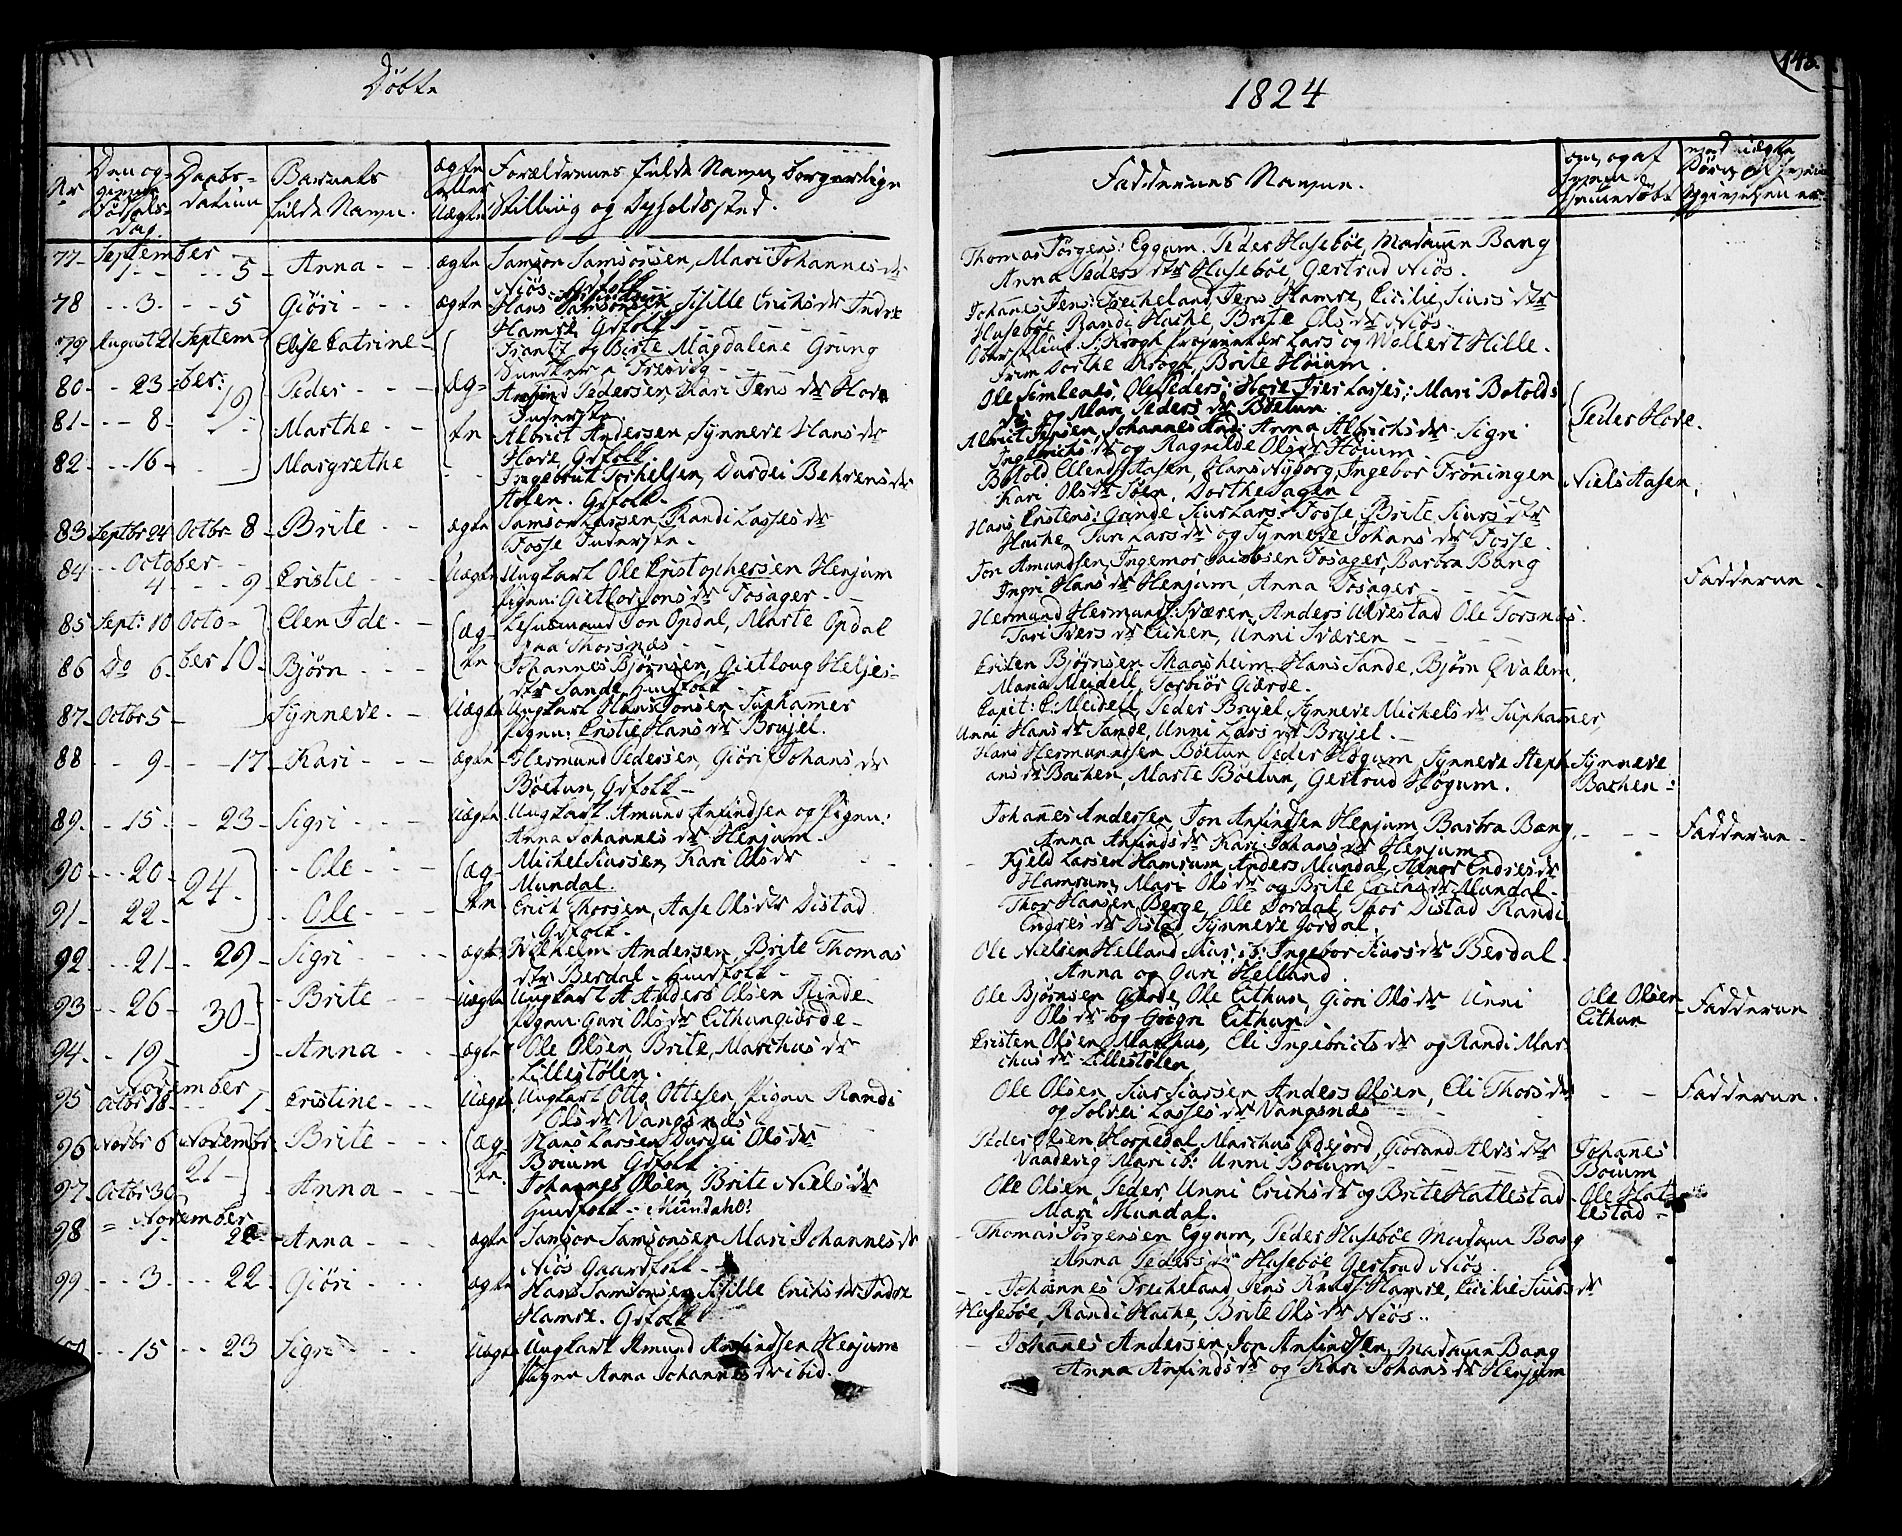 Døbte
1824
148
Nr
Den og-
Daabs-
datum
Barnets
fulde Navn.
ægte
eller
Uægte
Forældrenes fulde Navn, borgerlige
Stilling og Opholdssted.
Faddernes Navne.
om, og af
hvem
hjemmedøbt
September
77 - 1 - - - 5 - Anna - - - ægte Samson Samsonsen, Mari Johannes dr
Niøs. Grfolk
Thomas Jørgens: Eggum. Peder Husebøe, Madamn Bang
Anna Peders dtr Husebøe, Gertrud Niøs.
78 - - 3 - - - 5 Giøri - - - ægte Hans Samsonsen Sisille Erichs dr Indre
Hamre Grfolk
Johanes Jens: Frecheland, Jens Hamre, Cicilie Siurs dtr
Husebøe Randi Hache, Brite Ols dr Niøs.
79 August 21 Septem- Else Catrine - Frantz og Birte Magdalene Grung
Krogh Lars og Wollert Hille.
Dorthe Krogh, Brite Høium.
80 - - 23 - ber: 19 - Peder - - æg- Pedersen, Kari Jens dr Hove
Inderste.
Ole Simlenes, Ole Peders: Hove Iver Lasses: Mari Botolds
dr og Mari Peders dr Bøetun
Peder Hove.
81 - - - 8 - Marthe - - te Albrict Andersen, Synneve Hans dr
Hove, Grfolk
Albrict Jensen, Johannes And: Anna Albrichs dr Sigri
Ingebrichs dr og Ragnilde Ols dr Høium
82 - - 16 - Margrethe Ingebrict Torkelsen, Durdei Behrens dr
Holen. Grfolk -
Botold Ellends: Aasen, Hans Nyborg, Ingebor Frøningen
Kari Ols dr Søen, Dorthe Hagen
Niels Aasen,
83 Septbr 24 Octbr - 8 - Brite - - ægte Samson Larsen, Randi Lasses dr
Fosse Inderste -
Hans Cristens: Grinde Siur Lars: Fosse, Brite Siurs dtr
Hache, Turi Lars dr og Synneve Johans dr Fosse.
84 - - October - -
4 - - 9 - Cristie - - - Uægte Ungkarl Ole Cristophersen Henjum
Pigen: Gietlor Jons dr Fosager -
Jon Amundsen, Ingemor Jacobsen Fosager, Barbra Bang
Ingri Hans dr Henjum, Anna Fosager -
Fadderne -
85 Sept: 10 Octo- Elen Ide - - æg- Jon Opdal, Marte Opdal
paa Thorsnæs - -
Hermund Hermunds: Sværen, Anders Ulvestad Ole Torsnæs.
Turi Ivers dr Eithen, Unni Sværen - -
86 Do 6 ber 10 - Bjørn - - te Johannes Bjørnsen, Gietloug Heljes-
dtr Sande Huusfolk
Cristen Bjørnsen Skaasheim Hans Sande, Bjørn Qvalem,
Maria Meidell, Torbiør Giærde.
87 - Octbr 5 - Synneve - - Uægte Ungkarl Hans Jonsen Suphamer
Pigen: Cristie Hans dr Brujel.
Capit: C: Meidell, Peder Brujel, Synneve Michels dr Suphamer,
Unni Hans dr Sande, Unni Lars dr Brujel. -
88 - - 9 - - - 17 - Kari - - - ægte Hermund Pedersen, Giøri Johans dr
Bøetun, Grfolk -
Hans Hermundsen Bøetun Peder Høgum, Synneve Steph-
ans dr Bachen, Marte Bøetun, Gertrud Høgum.
Synneve
Bachen :
89. - 15. - 23 - Sigri - - - uægte Ungkarl Amund Anfindsen og Pigen:
Anna Johannes dr Henjum -
Johanes Andersen, Jon Anfindsen Henjum, Barbra Bæng,
Anna Anfinds dr Kari Johans dr Henjum
- - - Fadderne -
90 - - - 20 - 24 - - - Ole - - - æg- Michel Siursen, Kari Ols dr
Mundal.
Kjeld Larsen Hamrum, Anders Mundal, Endres dr
Hamrum, Mari Ols dr og Brite Erichs dr Mundal -
91 - 22 - - - Ole - - - te Erich Thorsen, Aase Ols dr Distad
Grfolk -
Thor Hansen Berge, Ole Jordal, Thor Distad Randi
Endres dr Distad, Synneve Jordal,
92 - - 21 - - 29 - Sigri - - - ægte Wilhelm Andersen, Brite Thomas
dtr Berdal - Huusfolk -
Ole Nielsen Helland, Siur ib: Ingebor Siurs dr Berdal.
Anna og Guri Helland
93 - - 26 - 30 - - Brite - - - uægte Ungkarl A Anders Olsen Rinde -
Pigen Guri Ols dr Eithungiærde -
Ole Bjørnsen Giærde, Ole Eithun, Giøri Ols dr Unni
Ols dr og Eithun
Ole Olsen
Eithun
- Fadderne
94 - - 19 - - Anna - - - ægte Ole Olsen Brite, Marchus dr
Lillestølen.
Cristen Olsen Marchus, Eli Ingebricts dr og Randi Mar-
chus dr Lillestølen
November
95 Octbr 18 - - - 1 - Cristine - - - Uægte Ungkarl Otto Ottesen, Pigen Randi
Ols dr Vangsnæs
Ole Olsen, Siur Siursen Anders Olsen, Eli Thors dr
og Solvei Lasses dr Vangsnæs
- - Fadderne.
96 Novbr 6 Novembr Brite - - - æg Hans Larsen Durdei Ols dr
Boium Grfolk
Peder Olsen Horpedal, Marchus Edejord, Giorand Alvs dtr
Vaadevig Mari ib: Unni Boium -
Johanes
Boium
97 - Octbr 30 21 - Anna - - - te. Johannes Olsen, Brite Niels dr
Huusfolk - Mundahl:
Ole Olsen, Peder, Unni Erichs dr og Brite Hatlestad
Mari Mundal.
- Ole Hat-
lestad -
November
98 7 - 22 - Anna - - - ægte Samson Samsonsen Mari Johannes dr
Niøs Gaardfolk - -
- Thomas Jørgensen Eggum, Peder Husebøe Madamn Bang
Anna Peders dr Husebøe Gertrud Niøs.
99 - - 3 - - - 22 - Giøri - - - ægte Hans Samsonsen Sisille Erichs dr Indre
Hamre. Grfolk
- - Johannes Frecheland, Jens Hamre, Cicilie Siurs dr
Husebøe, Randi Hache, Brite Ols dr Niøs.
100 - - 15 - - 23 Sigri - - - Uægte Ungkarl Amund Anfindsen Henjum
Pigen Anna Johannes dr ibid.
- Johannes Andersen Jon Anfindsen, Madamn Bang
Anna Anfinds dr og Kari Johans dr Henjum